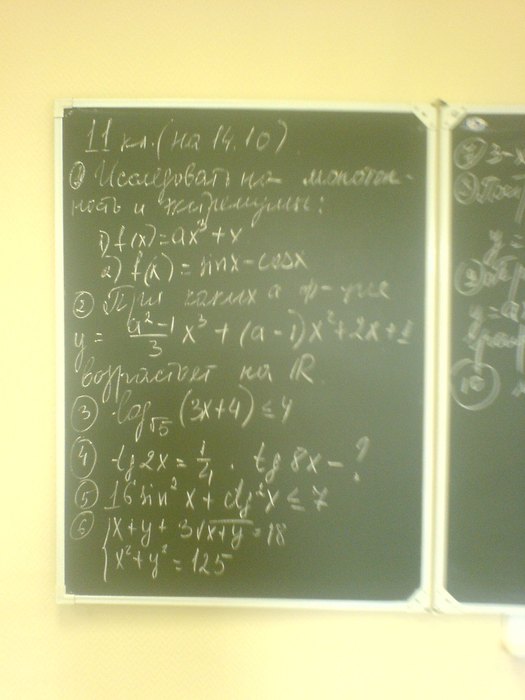 11 кл. (на 14.10)
① Исследовать на монотон-
ность и экстремумы:
1) f(x)=ax³+x
2) f(x)=sinx-cosx
② При каких a ф-ция
y = (a²-1)/3 x³ + (a-1)x²+2x+1
возрастает на R.
③ log√5 (3x+4) ≤ 4
④ tg2x = 1/4 . tg8x - ?
⑤ 16sin²x + ctg²x ≤ 7
⑥ { x+y+3√x+y = 18
x²+y² = 125